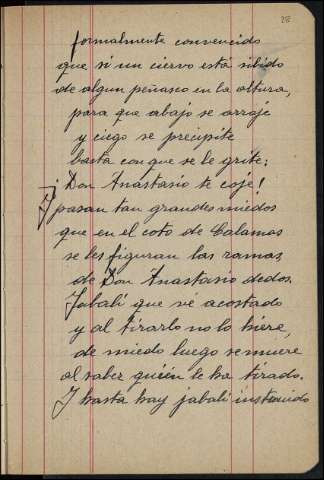 28
formalmente convencido
que si un ciervo está subido
de algun peñasco en la altura,
para que abajo se arroje
y ciego se precipite
basta con que se le grite:
¡Don Anastasio te coje!
Y pasan tan grandes miedos
que en el coto de Calamos
se les figuran las ramas
de Don Anastasio dedos.
Jabalí que vé acostado
y al tirarlo no lo hiere,
de miedo luego se muere
al saber quién le ha tirado.
Y hasta hay jabalí instruido